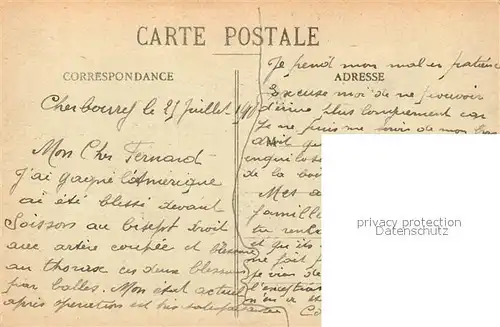 CARTE POSTALE
CORRESPONDANCE
ADRESSE
Cherbourg le 25 Juillet
Mon Cher Fernand
J'ai gagné l'Amérique
ai été blessé devant
Soissons au bisept droit
avec artère coupée et blessure
au thorax ces deux blessures
par balles. Mon état actuel
après opération est très
Je prend mon mal en patience
Excuse moi de ne pouvoir
d'écrire plus longuement car
Je ne puis me servir de mon bras
droit
de la
Mes
famille
tu
et qu'ils
me fait
je vien de
M
privacy protection
Datenschutz